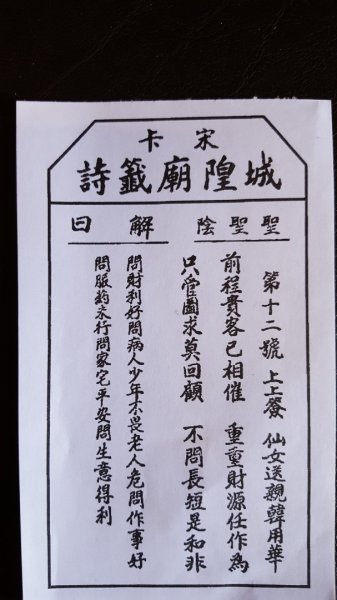 宋卡
城隍廟籤詩
聖聖陰
解曰
第十二號 上上簽 仙女送親韓用華
前程貴客已相催 重重財源任作為
只管圖求莫回顧 不問長短是和非
問財利好問病人少年不畏老人危問作事好
問服药永行問家宅平安問生意得利